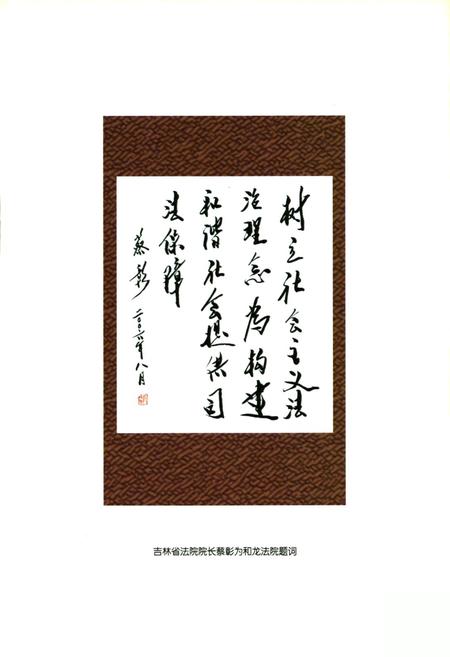 树立社会主义法
治理念为构建
和谐社会提供司
法保障
蔡彰
二〇〇六年八月
吉林省法院院长蔡彰为和龙法院题词